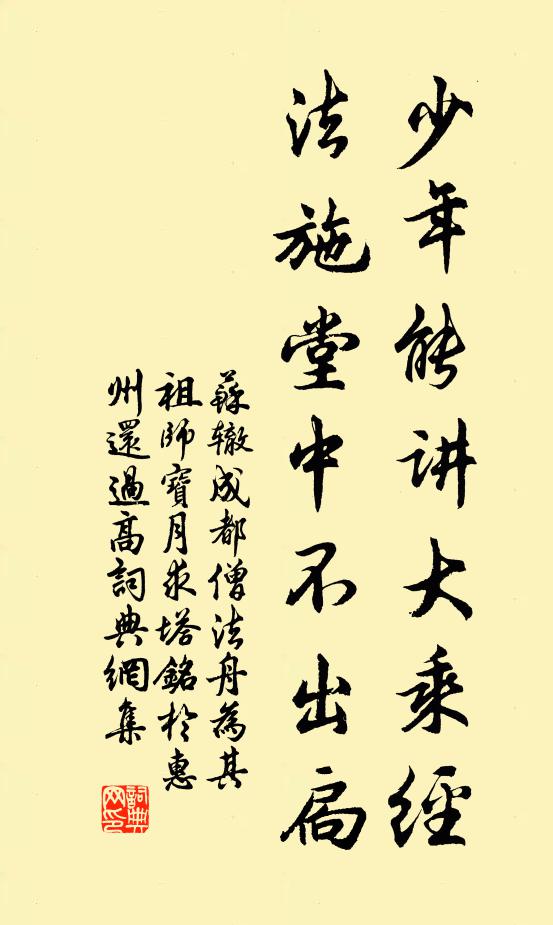 少年能讲大乘經
法施堂中不出扃
蘇辙成都僧法舟為其
祖師寶月求塔銘於惠
州還過高詞典網集
詞典
网印